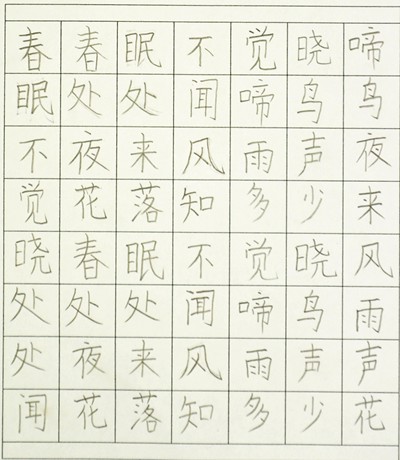 春春眠不觉晓啼
眠处处闻啼鸟鸟
不夜来风雨声夜
觉花落知多少来
晓春眠不觉晓风
处处处闻啼鸟雨
处夜来风雨声声
闻花落知多少花